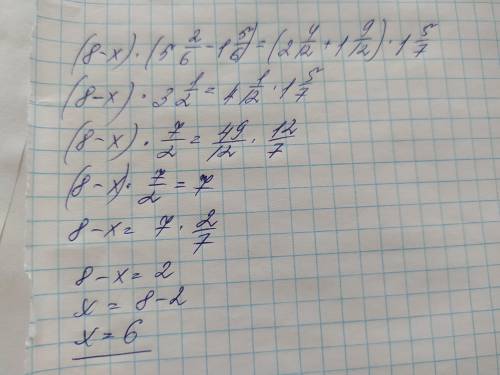 (8-x)·(5 2/6 - 1 5/6) = (2 4/12 + 1 9/12)·1 5/7
(8-x)·3 1/2 = 4 1/12 · 1 5/7
(8-x)·7/2 = 49/12 · 12/7
(8-x)·7/2 = 7
8-x = 7·2/7
8-x = 2
x = 8-2
x = 6